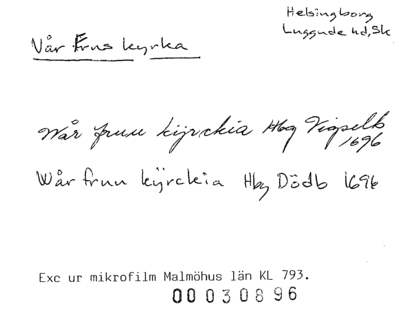 Helsingborg
Luggude hd, Sk
Vår Frus kyrka
Wår fruu kijrckia Hbg Vigselb
1696
Wår fruu kÿrckia Hbg Dödb 1696
Exc ur mikrofilm Malmöhus län KL 793.
00030896